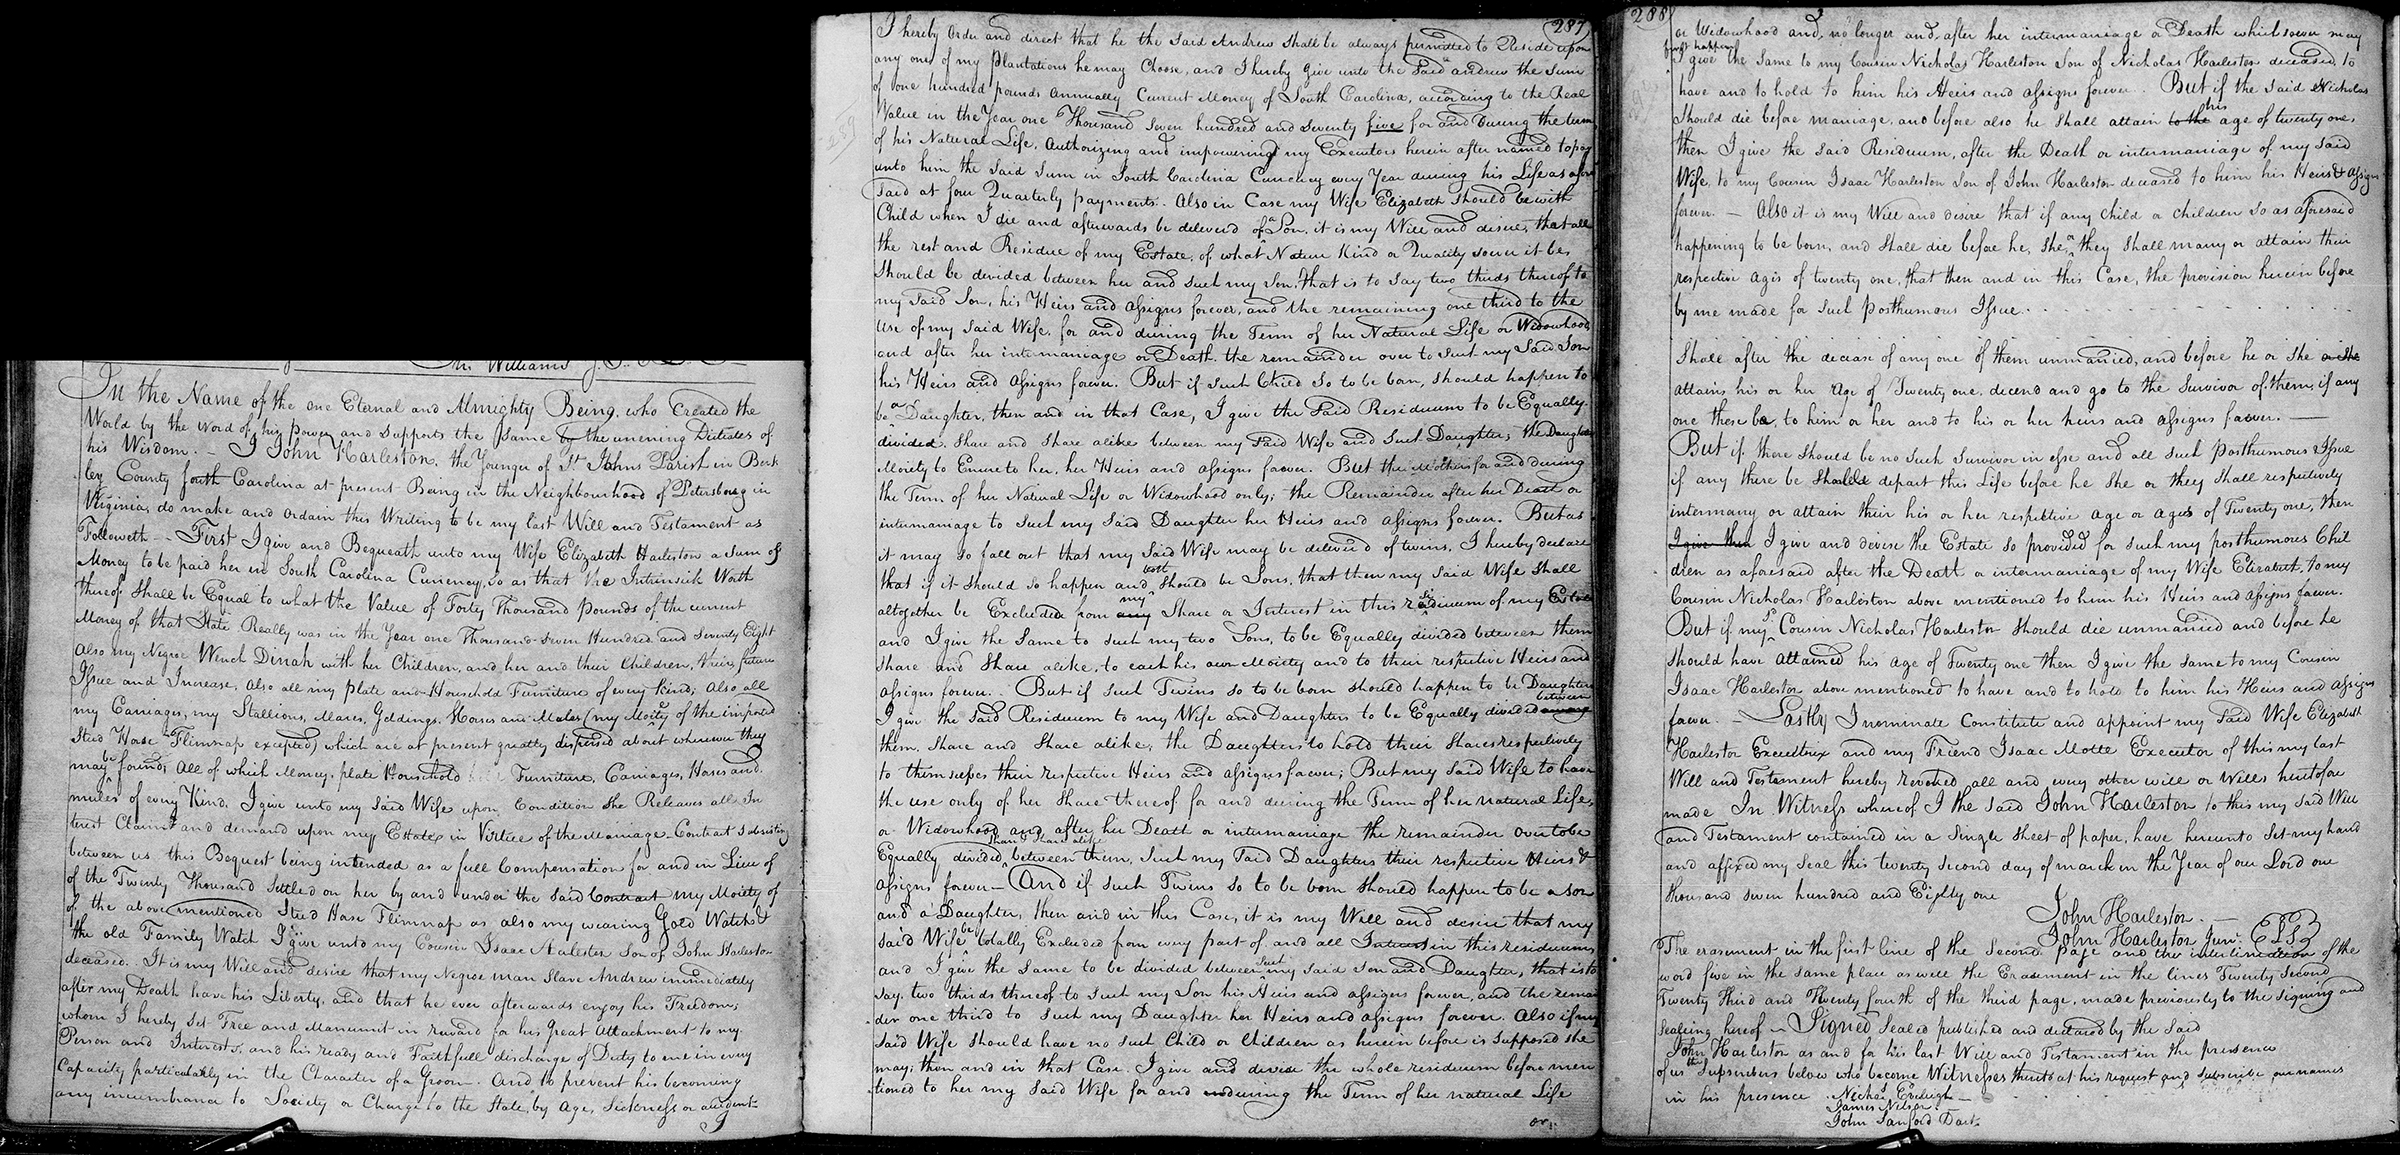 Mr. Williams J.
In the Name of the one Eternal and Almighty Being, who Created the
World by the word of his power and supports the same by the unerring Dictates of
his Wisdom. - I John Harleston, the Younger of St. Johns Parish in Berk
ley County South Carolina at present Being in the Neighbourhood of Petersburg in
Virginia, do make and ordain this Writing to be my last Will and Testament as
Followeth - First I give and Bequeath unto my Wife Elizabeth Harleston a sum of
Money to be paid her in South Carolina Currency, so as that the Intrinsick Worth
thereof Shall be Equal to what the Value of Forty Thousand pounds of the current
Money of that State Really was in the Year one Thousand Seven Hundred and Seventy Eight
Also my Negroe Wench Dinah with her Children, and her and their Children, their future
Issue and Increase, Also all my plate and Household Furniture of every kind; Also all
my Carriages, my Stallions, Mares, Geldings, Horses and Mules (my Moity of the imported
Stud Horse Flimnap excepted) which are at present greatly dispersed about wherever they
may be found; All of which Money, plate Household Furniture, Carriages, Horses and
mules of every Kind. I give unto my said Wife upon Condition she Releases all In
terest Claim and demand upon my Estate in Virtue of the Marriage Contract subsisting
between us, this Bequest being intended as a full Compensation for and in Lieu of
of the Twenty Thousand Settled on her by and under the said Contract my Moiety of
of the above mentioned Stud Horse Flimnap as also my wearing Gold Watch &
the old Family Watch I give unto my Cousin Isaac Harleston Son of John Harleston
deceased. It is my Will and desire that my Negroe man Slave Andrew immediately
after my Death have his Liberty, and that he ever afterwards enjoy his Freedom;
whom I hereby Set Free and Manumit in reward for his great Attachment to my
Person and Interests, and his ready and Faithfull discharge of Duty to me in every
Capacity particularly in the Character of a Groom. And to prevent his becoming
any incumbrance to Society or Charge to the State, by Age, Sickness or accident
287
I hereby Order and direct that he the said Andrew shall be always permitted to Reside upon
any one of my Plantations he may Choose, and I hereby Give unto the said Andrew the Sum
of one hundred pounds Annually Current Money of South Carolina, according to the Real
Value in the Year one Thousand Seven hundred and Seventy five for and during the term
of his Natural Life, Authorizing and impowering my Executors herein after named to pay
unto him the said Sum in South Carolina Currency every Year during his Life as afore
said at four Quarterly payments. Also in Case my Wife Elizabeth Should be with
Child when I die and afterwards be delivered of a Son, it is my Will and desire, that all
the rest and Residue of my Estate, of what Nature Kind or Quality soever it be,
Should be divided between her and such my Son, that is to say two thirds thereof to
my said Son, his Heirs and Assigns forever, and the remaining one third to the
Use of my said Wife, for and during the Term of her Natural Life or Widowhood
and after her intermarriage or Death, the remainder over to Such my Said Son
his Heirs and Assigns forever. But if Such Child so to be born, should happen to
be a Daughter, then and in that Case, I give the said Residuum to be Equally
divided, share and share alike between my said Wife and Such Daughter; the Daughters
Moiety to Enure to her, her Heirs and Assigns forever. But the Mothers for and during
the Term of her Natural Life or Widowhood only; the Remainder after her Death or
intermarriage to Such my said Daughter her Heirs and Assigns forever. But as
it may so fall out that my said Wife may be delivered of twins, I hereby declare
that if it should so happen and both should be Sons, that then my said Wife shall
altogether be Excluded from any my Share or Interest in this residuum of my Estate
and I give the Same to such my two Sons, to be Equally divided between them
share and share alike, to each his own Moiety and to their respective Heirs and
Assigns forever. But if such Twins so to be born should happen to be Daughters
I give the said Residuum to my Wife and Daughters to be Equally divided among between
them, share and share alike, the Daughters to hold their shares respectively
to themselves their respective Heirs and assigns forever; But my said Wife to have
the use only of her share thereof for and during the Term of her natural Life,
or Widowhood, and after her Death or intermarriage the remainder over to be
Equally divided share & share alike between them, such my said Daughters their respective Heirs &
Assigns forever - And if such Twins so to be born should happen to be a son
and a Daughter, then and in this Case, it is my Will and desire that my
said Wife be totally Excluded from every part of and all Interest in this residuum,
and I give the Same to be divided between such my said son and Daughter, that is to
say, two thirds thereof to such my Son his Heirs and assigns forever, and the remain
der one third to such my Daughter her Heirs and assigns forever. Also if my
said Wife should have no such Child or Children as herein before is supposed she
may; then and in that Case, I give and devise the whole residuum before men
tioned to her my said Wife for and during the Term of her natural Life
or
288
or Widowhood and no longer and after her intermarriage or Death which soever may
first happen I give the Same to my Cousin Nicholas Harleston Son of Nicholas Harleston deceased to
have and to hold to him his Heirs and assigns forever. But if the said Nicholas
Should die before marriage, and before also he shall attain to the his age of twenty one,
then I give the said Residuum, after the Death or intermarriage of my said
Wife, to my Cousin Isaac Harleston Son of John Harleston deceased to him his Heirs & Assigns
forever. - Also it is my Will and desire that if any child or children so as aforesaid
happening to be born, and shall die before he, she or they shall marry or attain their
respective ages of twenty one, that then and in this Case, the provision herein before
by me made for such posthumous Issue. . . . . . . . . . .
Shall after the decease of any one of them unmarried, and before he or she or she
attains his or her Age of Twenty one, decend and go to the Survivor of them, if any
one there be, to him or her and to his or her heirs and assigns forever. -
But if there should be no such Survivor in esse and all such Posthumous Issue
if any there be should depart this Life before he she or they shall respectively
intermarry or attain their his or her respective age or ages of Twenty one, Then
I give then I give and devise the Estate so provided for such my posthumous Chil
dren as aforesaid after the Death or intermarriage of my Wife Elizabeth, to my
Cousin Nicholas Harleston above mentioned to him his Heirs and Assigns forever.
But if my sd. Cousin Nicholas Harleston should die unmarried and before he
should have attained his age of Twenty one then I give the same to my Cousin
Isaac Harleston above mentioned to have and to hold to him his Heirs and Assigns
forever. - Lastly I nominate Constitute and appoint my said Wife Elizabeth
Harleston Executrix and my Friend Isaac Motte Executor of this my last
Will and Testament hereby revoked all and every other will or Wills heretofore
made In Witness whereof I the said John Harleston to this my said Will
and Testament contained in a Single sheet of paper, have hereunto Set my hand
and affixed my Seal this twenty second day of march in the Year of our Lord one
thousand seven hundred and Eighty one
John Harleston. -
John Harleston Junr. (LS)
The erasement in the first line of the Second page and the interlineation of the
word five in the same place as well the Erasement in the lines Twenty Second
Twenty third and Twenty fourth of the third page, made previously to the signing and
sealing hereof - Signed Sealed published and declared by the said
John Harleston as and for his last Will and Testament in the presence
of us the Supscribers below who become Witnesses thereto at his request and subscribe our names
in his presence Nichs. Eveleigh -
James Nelson.
John Sanford Dart.